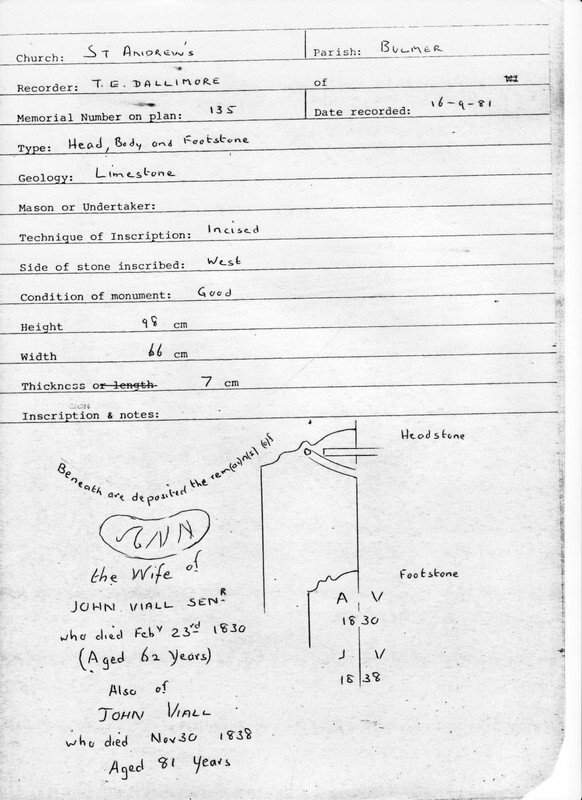 Church: ST ANDREW'S Parish: BULMER
Recorder: T. E. DALLIMORE of
Memorial Number on plan: 135 Date recorded: 16-9-81
Type: Head, Body and Footstone
Geology: Limestone
Mason or Undertaker:
Technique of Inscription: Incised
Side of stone inscribed: West
Condition of monument: Good
Height 98 cm
Width 66 cm
Thickness or length 7 cm
Inscription & notes:
Headstone
Beneath are deposited the rem(a)in(s) (o)f
ANN
the Wife of
JOHN VIALL SENR
who died Feby 23rd 1830
(Aged 62 Years)
Also of
JOHN VIALL
who died Nov 30 1838
Aged 81 Years
Footstone
A V
18 30
J V
18 38